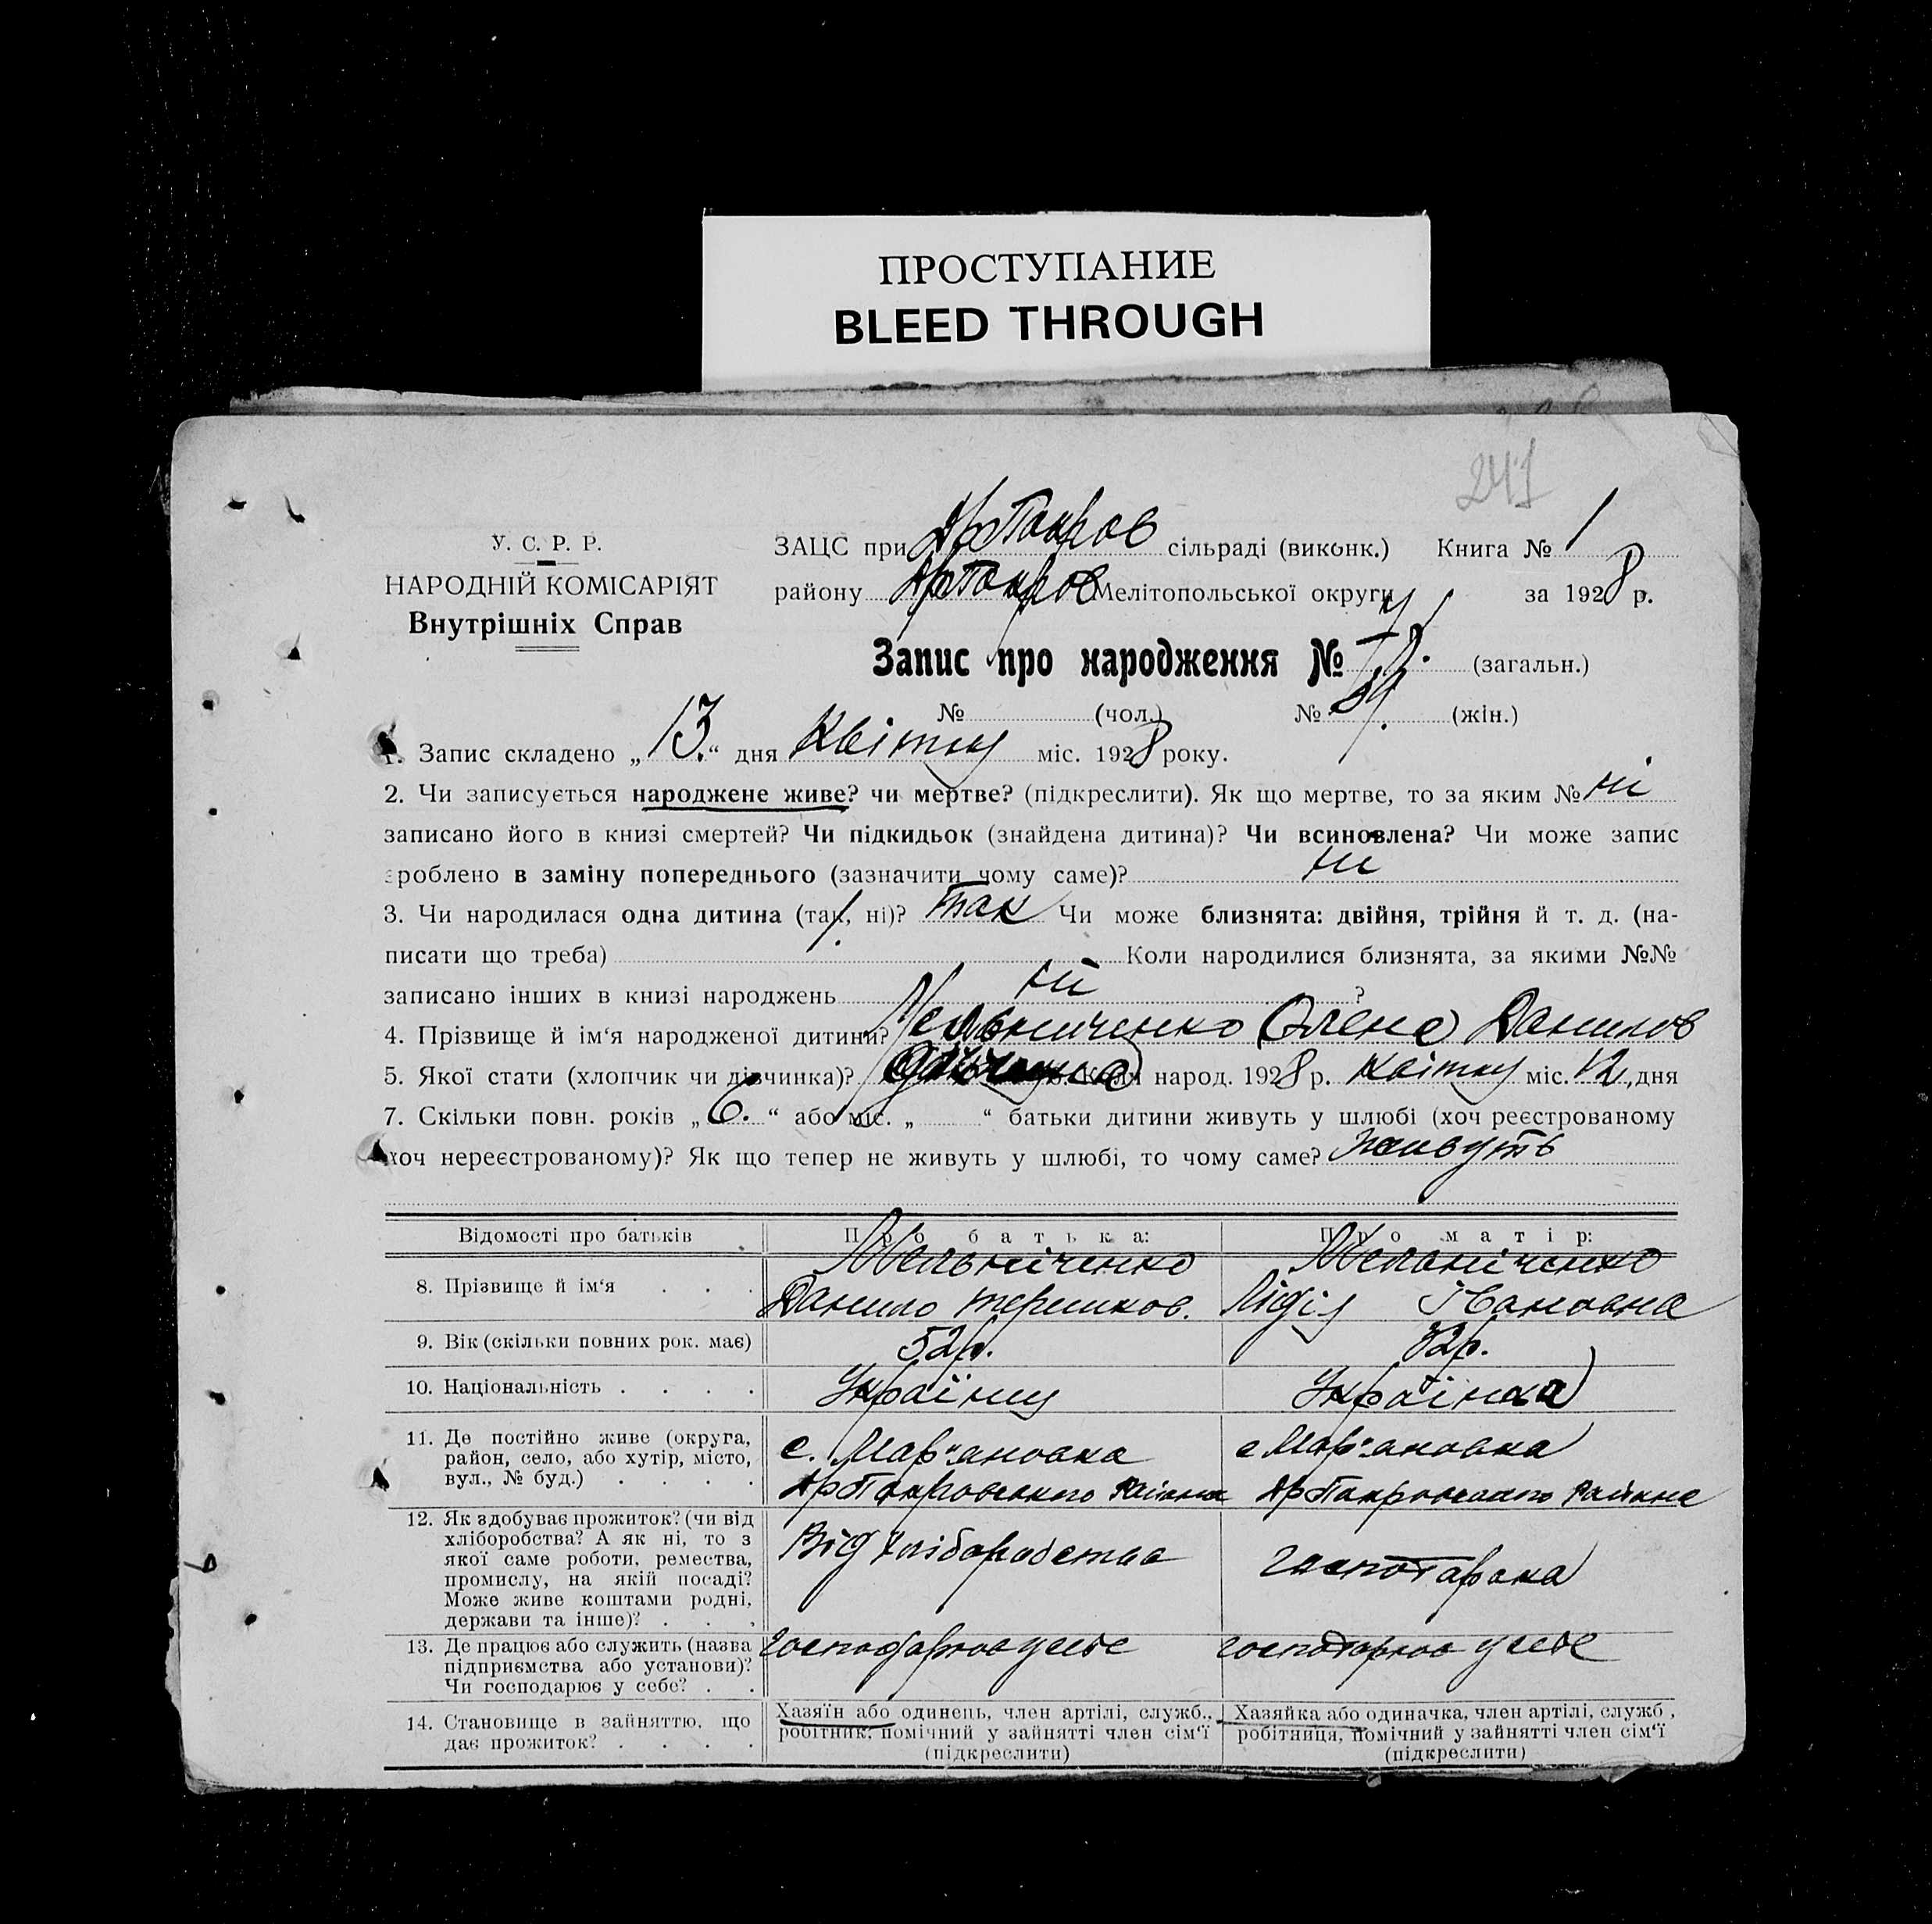 ПРОСТУПАНИЕ
BLEED THROUGH
241
У. С. Р. Р.
НАРОДНІЙ КОМІСАРІЯТ
Внутрішніх Справ
ЗАЦС при АрПокров сільраді (виконк.) Книга № 1
району АрПокров Мелітопольської округи за 1928 р.
Запис про народження № (загальн.)
№ (чол.) № (жін.)
1. Запис складено „13.“ дня Квітну міс. 1928 року.
2. Чи записується народжене живе? чи мертве? (підкреслити). Як що мертве, то за яким № ні
записано його в книзі смертей? Чи підкидьок (знайдена дитина)? Чи всиновлена? Чи може запис
зроблено в заміну попереднього (зазначити чому саме)? ні
3. Чи народилася одна дитина (так, ні)? так Чи може близнята: двійня, трійня й т. д. (на-
писати що треба) Коли народилися близнята, за якими №№
записано інших в книзі народжень ні ?
4. Прізвище й ім‘я народженої дитини? Мельниченко Олена Данилов
5. Якої стати (хлопчик чи дівчинка)? народ. 1928 р. Квітну міс. 12, дня
7. Скільки повн. років „6.“ або міс. „ “ батьки дитини живуть у шлюбі (хоч реєстрованому
хоч нереєстрованому)? Як що тепер не живуть у шлюбі, то чому саме? живуть
Відомості про батьків Про батька: Про матір:
8. Прізвище й ім‘я . . . Мельніченко Мельніченко
Данило Терешков. Лідія Івановна
9. Вік (скільки повних рок. має) 52р. 32р.
10. Національність . . . . Українц Українка
11. Де постійно живе (округа, район, село, або хутір, місто, вул., № буд.) . . . .
с. Мар"ановка с Мар"ановка
АрПокровського Района АрПокровського Района
12. Як здобуває прожиток? (чи від хліборобства? А як ні, то з якої саме роботи, ремества, промислу, на якій посаді? Може живе коштами родні, держави та інше)? . . .
Від хліборобства господарока
13. Де працює або служить (назва підприємства або установи)? Чи господарює у себе? . .
господарює у себе господарює у себе
14. Становище в зайняттю, що дає прожиток? . . . .
Хазяїн або одинець, член артілі, служб., Хазяйка або одиначка, член артілі, служб ,
робітник, помічний у зайнятті член сім‘ї робітниця, помічний у зайнятті член сім‘ї
(підкреслити) (підкреслити)